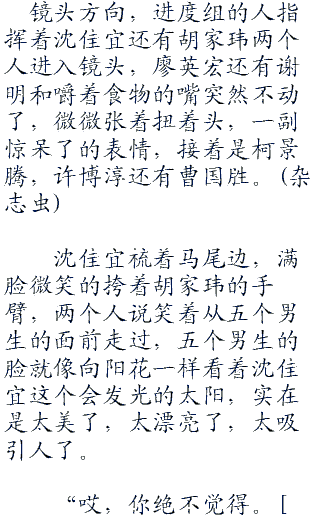 镜头方向，进度组的人指
挥着沈住宜还有胡家玮两个
人进入镜头，廖英宏还有谢
明和嚼着食物的嘴突然不动
了，微微张着扭着头，一副
惊呆了的表情，接着是柯景
腾，许博淳还有曹国胜。(杂
志虫)
沈住宜梳着马尾边，满
脸微笑的挎着胡家玮的手
臂，两个人说笑着从五个男
生的面前走过，五个男生的
脸就像向阳花一样看着沈住
宜这个会发光的太阳，实在
是太美了，太漂亮了，太吸
引人了。
“哎，你绝不觉得。[